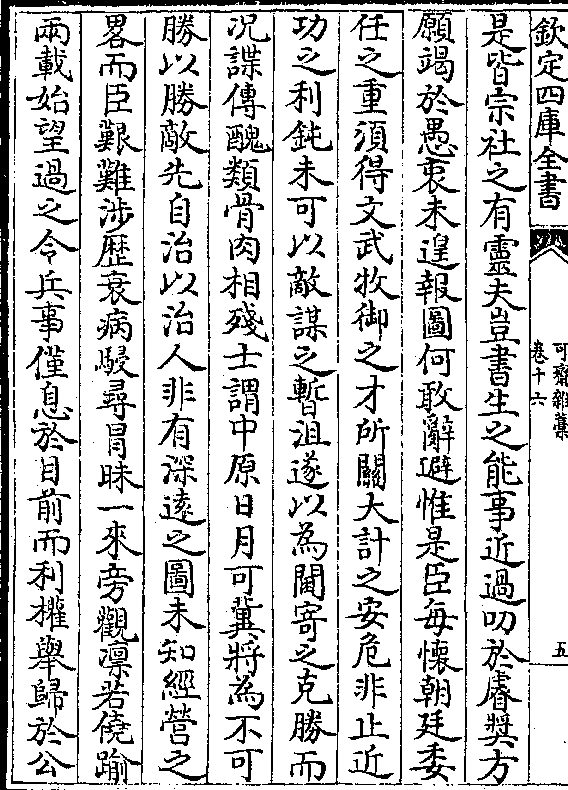 欽定四庫全書
可齋雜藁
卷十六
五
是皆宗社之有靈夫豈書生之能事近過叨於睿獎方
願竭於愚衷未遑報圖何敢辭避惟是臣每懷朝廷委
任之重須得文武牧御之才所關大計之安危非止近
功之利鈍未可以敵謀之暫沮遂以為閫寄之克勝而
况諜傳醜類骨肉相殘士謂中原日月可冀將為不可
勝以勝敵先自治以治人非有深逺之圖未知經營之
畧而臣艱難涉歴衰病駸尋冐昧一來旁觀凛若僥踰
兩載始望過之今兵事僅息於目前而利權舉歸於公